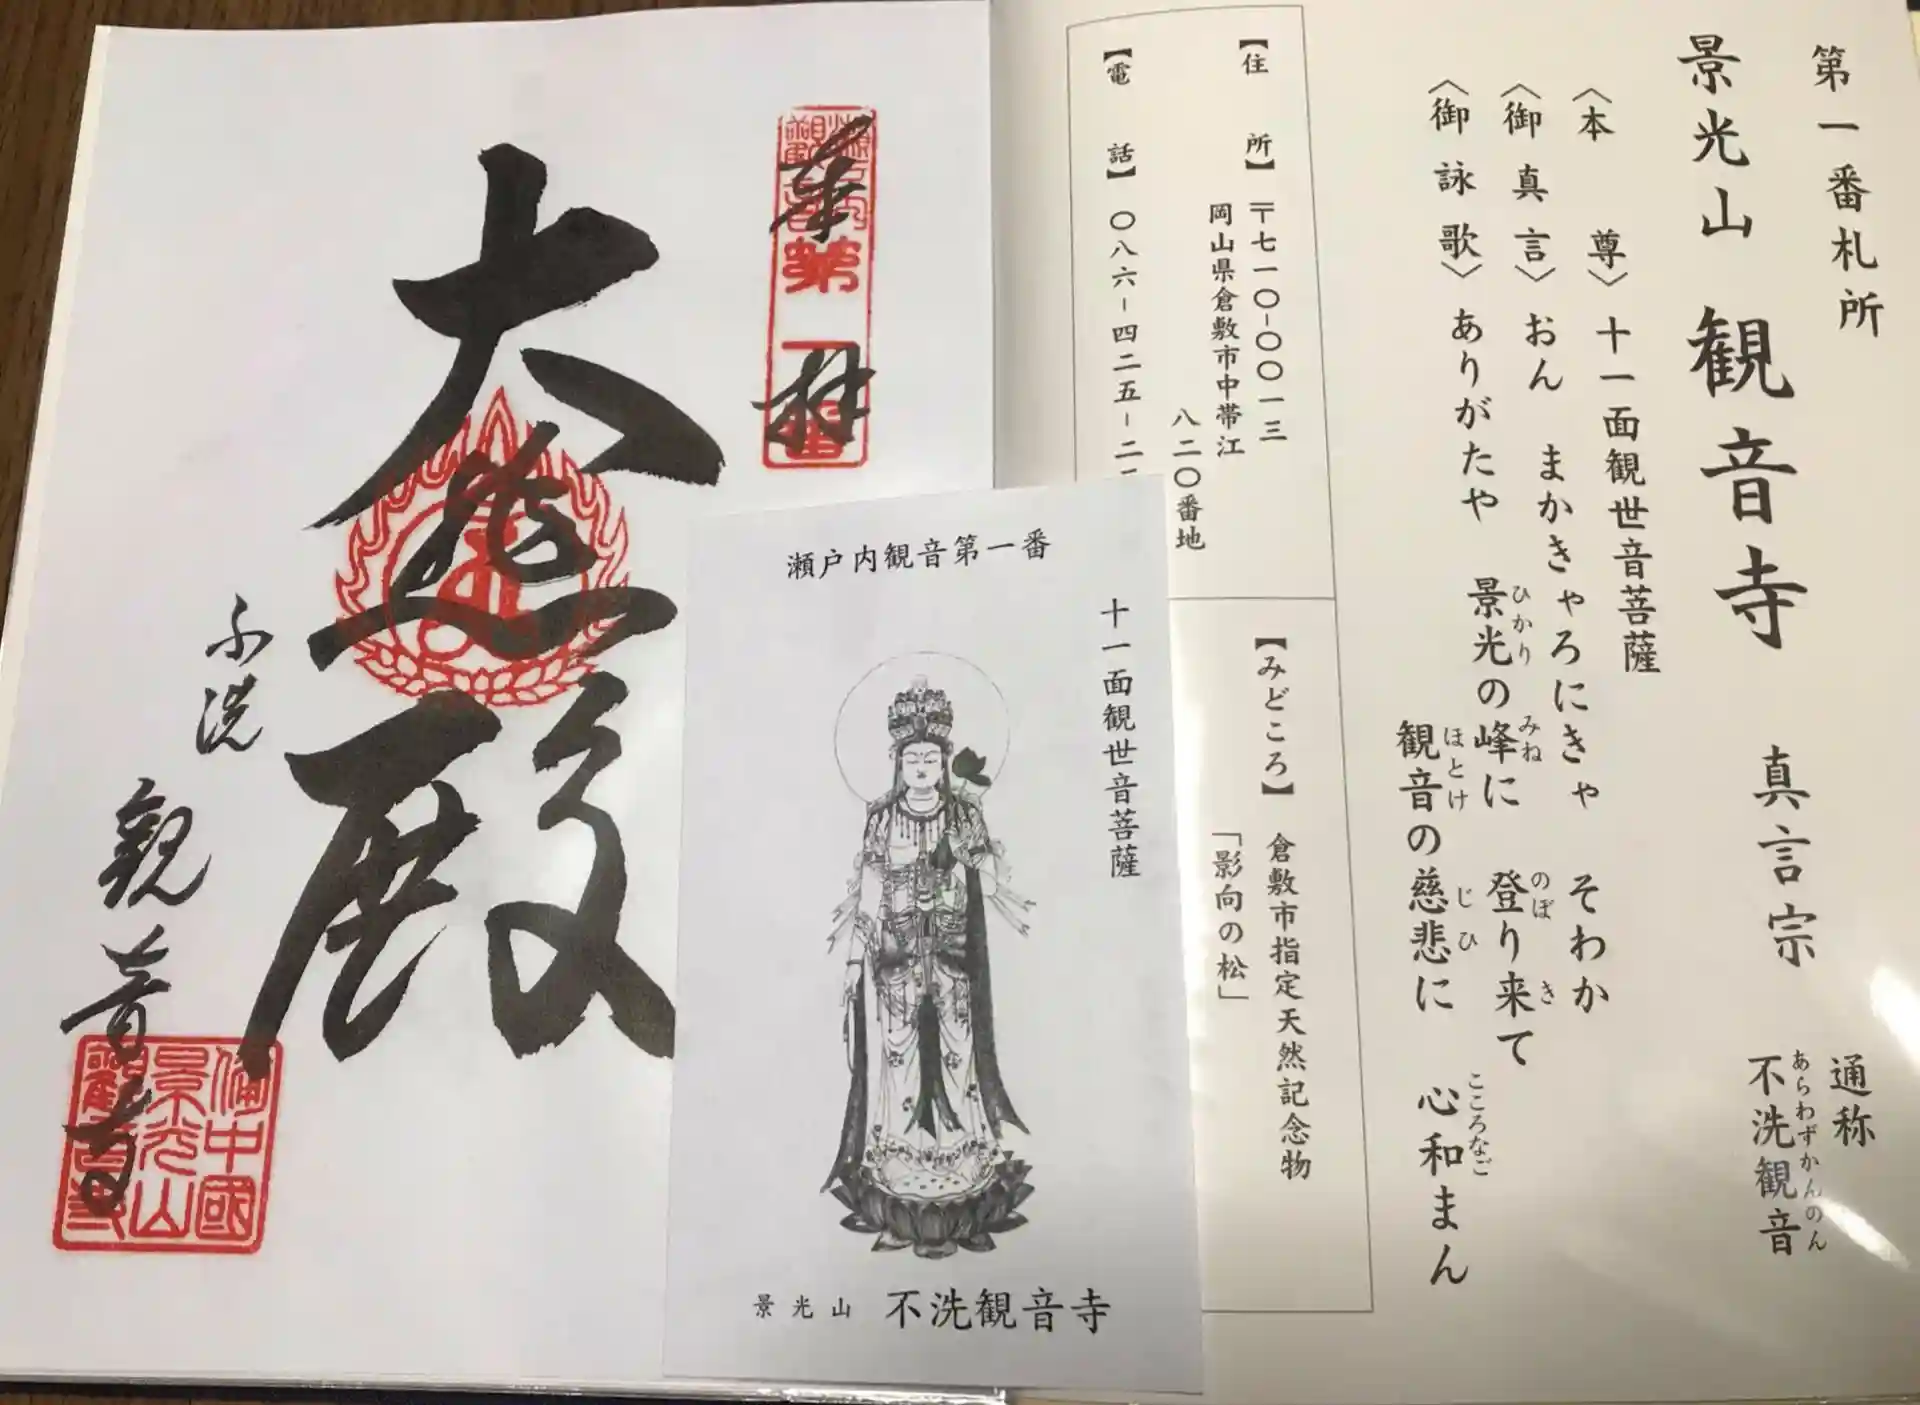 第一番札所
景光山 観音寺 真言宗 通称 不洗観音
あらわずかんのん
〈本尊〉 十一面観世音菩薩
〈御真言〉 おん まかきゃろにきゃ そわか
〈御詠歌〉 ありがたや 景光の峰に 登り来て
ひかり みね のぼ き
観音の慈悲に 心和まん
ほとけ じひ こころなご
【住所】 〒七一〇-〇〇一三
岡山県倉敷市中帯江
八二〇番地
【電話】 〇八六-四二五-二
【みどころ】 倉敷市指定天然記念物
「影向の松」
瀬戸内観音第一番
十一面観世音菩薩
景光山 不洗観音寺
奉拝
第一番
大悲殿
不洗
観音寺
備中國
景光山
観音寺